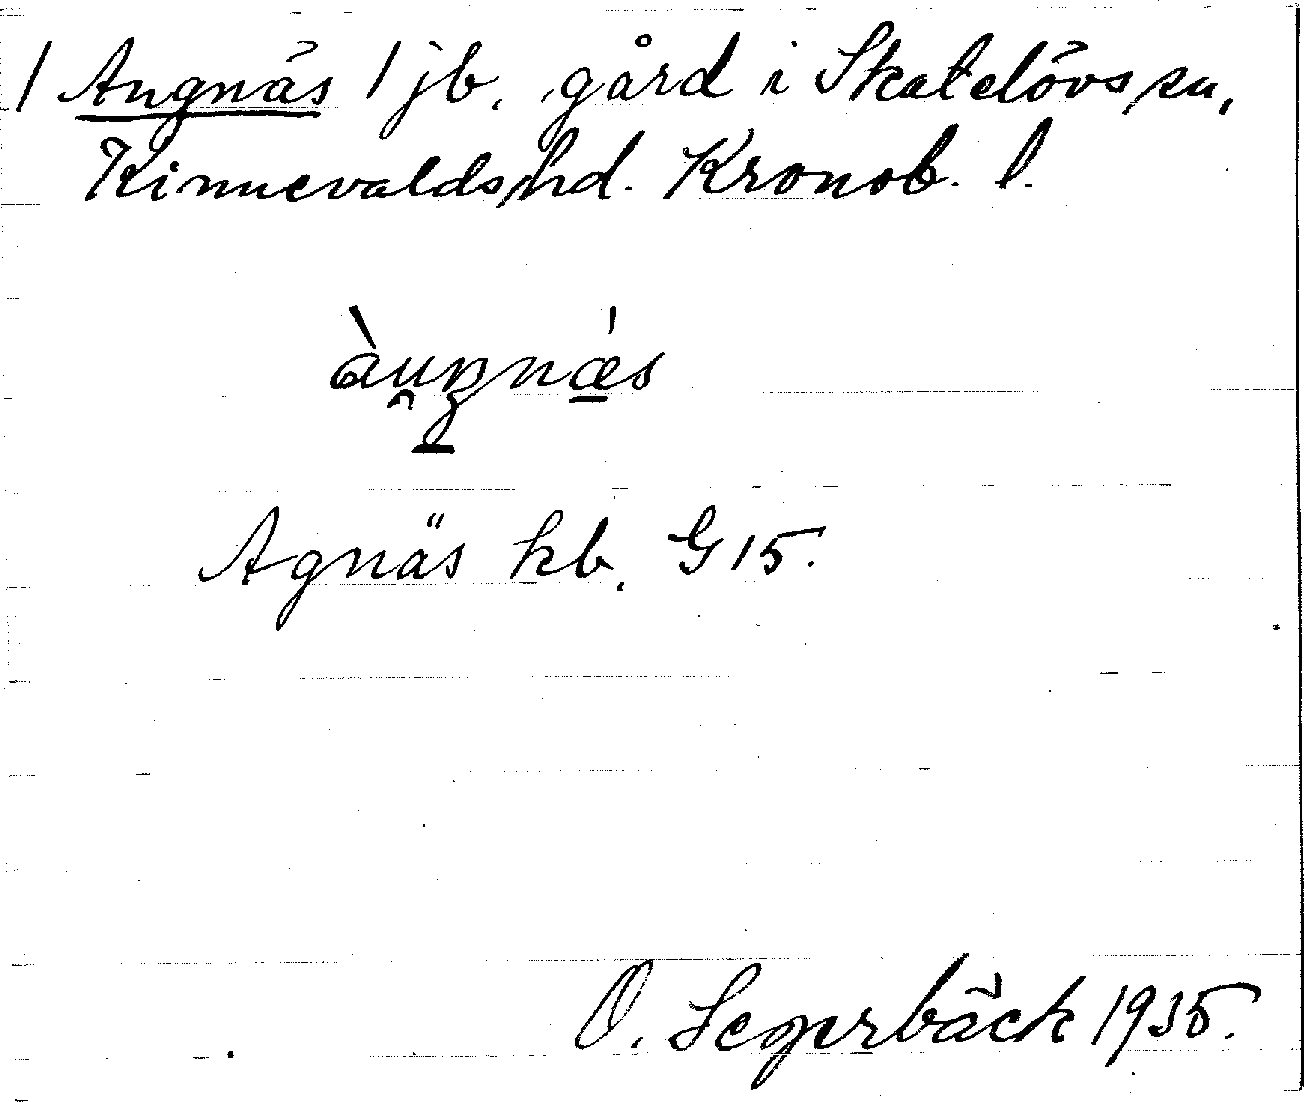 / Angnäs / jb. gård i Skatelövs sn,
Kinnevalds hd. Kronob. l.
àu̯ŋnæ̀s
Agnäs kb. G 15.
O. Segerbäck 1935.